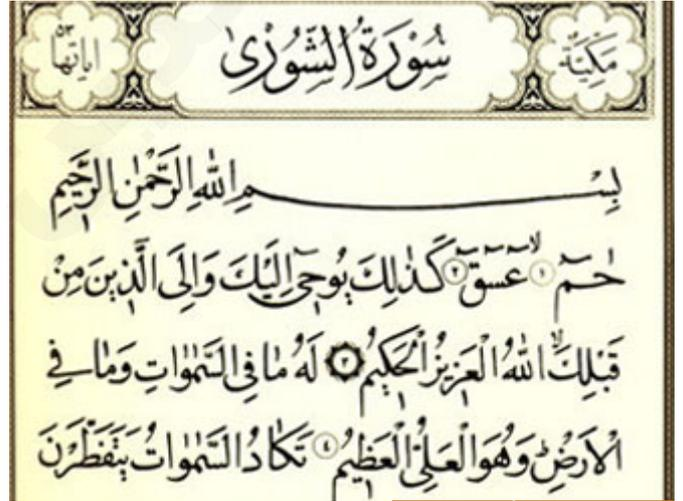 مَكِّيَّةٌ سُورَةُ الشُّورٰى اٰيَاتُهَا ٥٣
بِسْمِ اللّٰهِ الرَّحْمٰنِ الرَّحٖيمِ
حٰمٓ ﴿١﴾ عٓسٓقٓ ﴿٢﴾ كَذٰلِكَ يُوحٖٓى اِلَيْكَ وَاِلَى الَّذٖينَ مِنْ
قَبْلِكَۙ اللّٰهُ الْعَزٖيزُ الْحَكٖيمُ ﴿٣﴾ لَهُ مَا فِى السَّمٰوَاتِ وَمَا فِى
الْاَرْضِۜ وَهُوَ الْعَلِىُّ الْعَظٖيمُ ﴿٤﴾ تَكَادُ السَّمٰوَاتُ يَتَفَطَّرْنَ